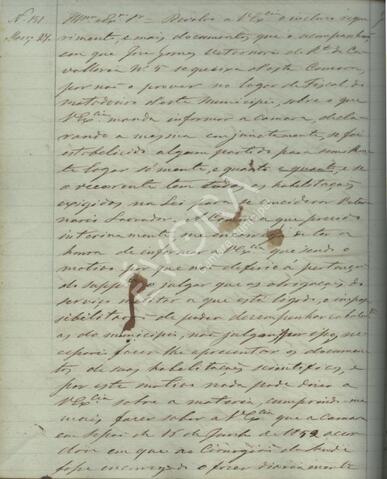 N. 151
Março 27.
Illmo e Exmo Snr = Devolvo a V. Excia o incluso reque
rimento, e mais documentos que o acompanhão
em que José Gomes Veternario do Rto de Ca
vallaria Nº 5 se queixa desta Camara,
por não o prover no logar de Fiscal do
matadouro deste Municipio, sobre o que
V. Excia manda informar a Camara, decla
rando a mesma conjunctamente, se foi
estabelecido algum partido para semilhan
te logar sómente, e quanto e quanto, e se
o recorrente tem todas as habilitações
exigidas na Lei para se considerar Vete
rinario Lavrador; a Camara que presido
interinamente me encarrega de ter a
honra de informar a V. Excia que sendo o
motivo por que não deferio á pertenção
do suppte julgar que as obrigações do
serviço militar a que está ligado, o impos
sibilitarião de poder desempenhar cabalmen
as do municipio, não julgou por isso, ne
cessario fazer lhe apresentar os documen
tos de suas habilitações scientificas, e
por este motivo nada pode dizer a
V. Excia sobre a materia, cumprindo-me
mais fazer saber a V. Excia que a Camara
em sessão de 15 de Junho de 1852 acor
dou em que os Cirurgiões da Saude
fosse encarregado o fazer diariamente